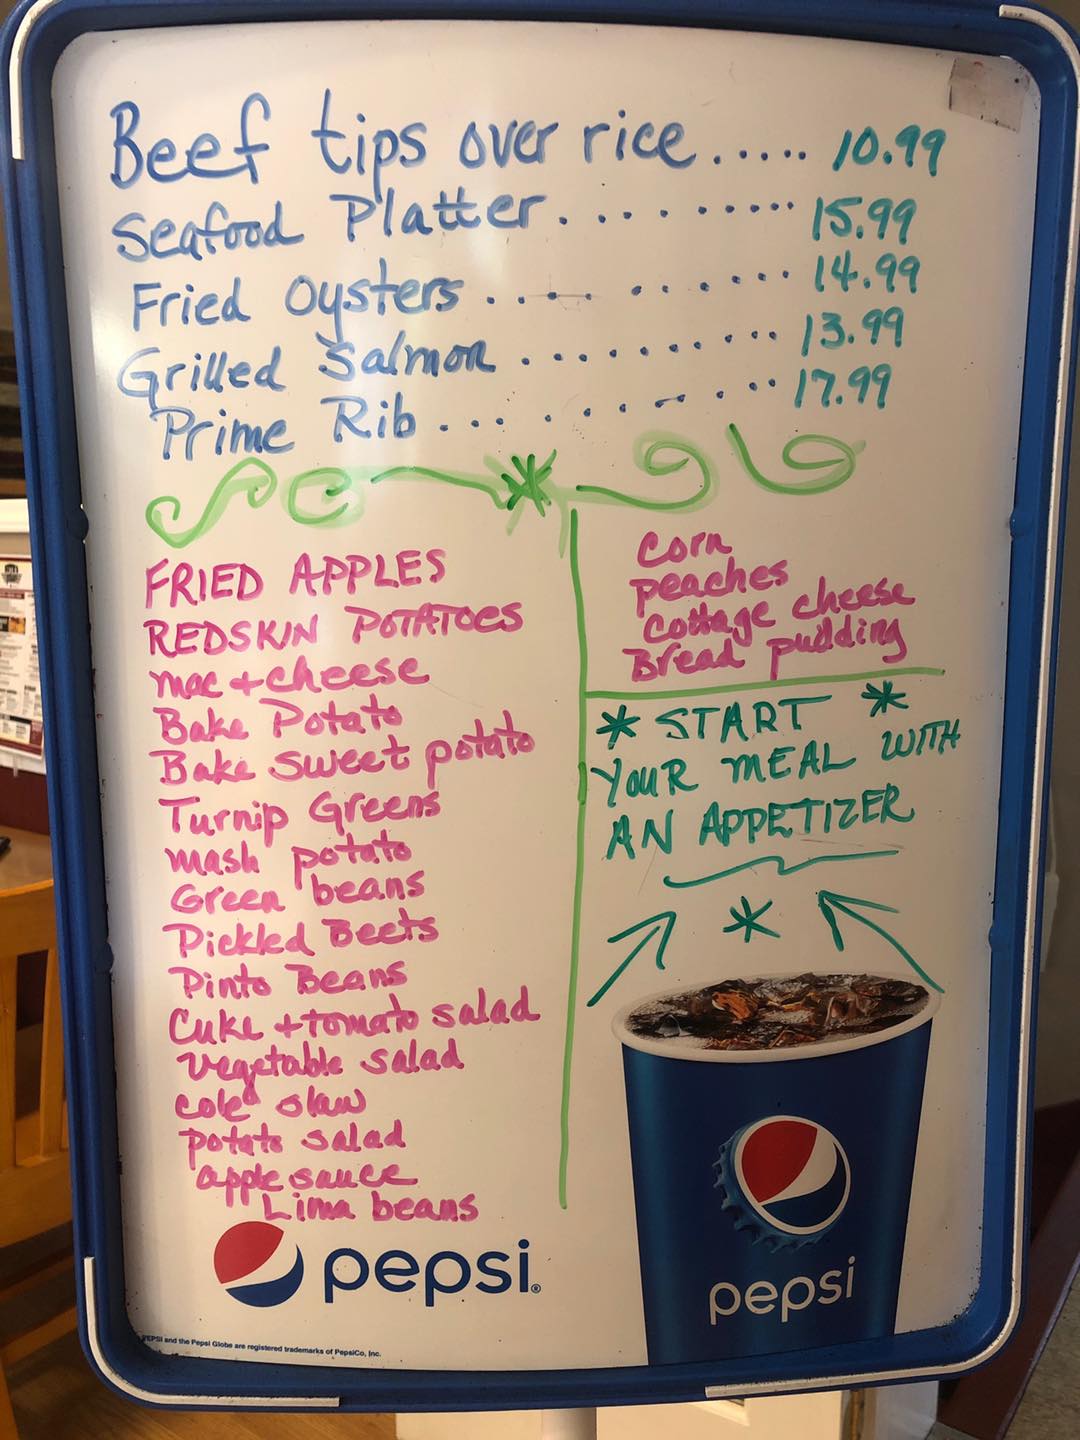 Beef tips over rice..... 10.99
Seafood Platter.......... 15.99
Fried Oysters........... 14.99
Grilled Salmon.......... 13.99
Prime Rib............ 17.99
FRIED APPLES
REDSKIN POTATOES
mac + cheese
Bake Potato
Bake sweet potato
Turnip Greens
mash potato
Green beans
Pickled Beets
Pinto Beans
Cuke + tomato salad
Vegetable salad
cole slaw
potato salad
apple sauce
Lima beans
Corn
peaches
Cottage cheese
Bread pudding
* START *
YOUR MEAL WITH
AN APPETIZER
*
pepsi
pepsi®
PEPSI and the Pepsi Globe are registered trademarks of PepsiCo, Inc.